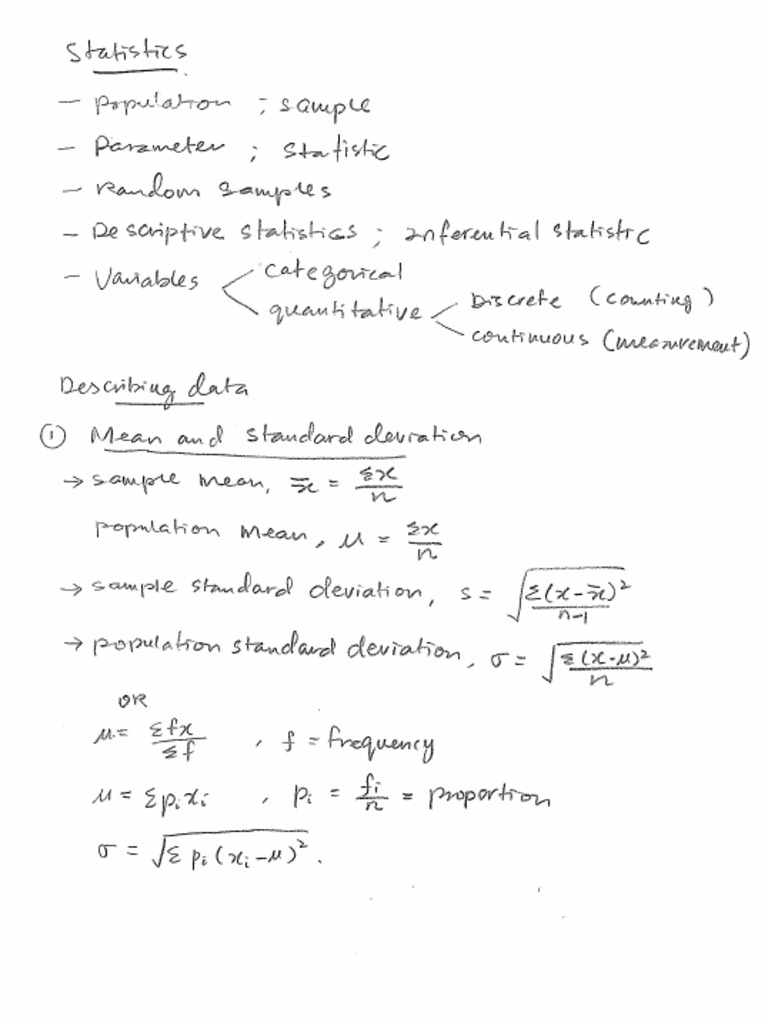 Statistics
– Population ; sample
– Parameter ; statistic
– Random samples
– Descriptive statistics ; Inferential statistic
– Variables < categorical
quantitative < Discrete (counting)
continuous (measurement)
Describing data
① Mean and standard deviation
→ sample mean, x̄ = Σx/n
population mean, μ = Σx/n
→ sample standard deviation, s = √(Σ(x-x̄)²/(n-1))
→ population standard deviation, σ = √(Σ(x-μ)²/n)
OR
μ = Σfx/Σf , f = frequency
μ = Σpᵢxᵢ , pᵢ = fᵢ/n = proportion
σ = √(Σ pᵢ(xᵢ-μ)²) .